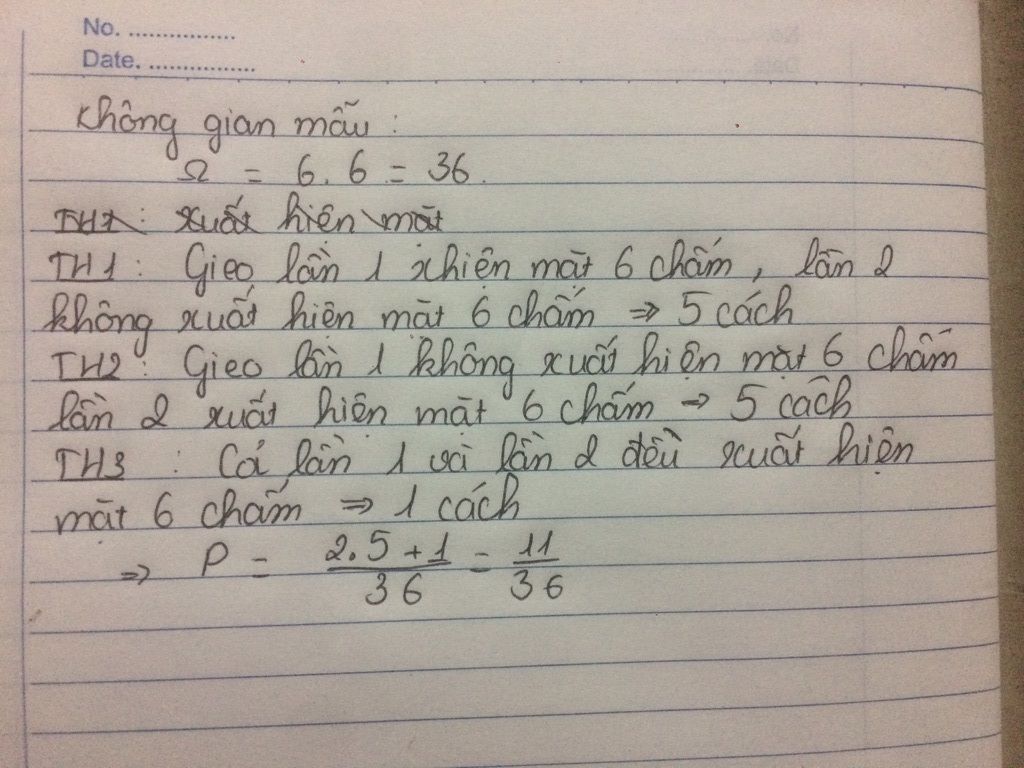 No. ................
Date. ................
Không gian mẫu :
Ω = 6 . 6 = 36 .
TH1 : xuất hiện mặt
TH1 : Gieo lần 1 xhiện mặt 6 chấm , lần 2
không xuất hiện mặt 6 chấm ⇒ 5 cách
TH2 : Gieo lần 1 không xuất hiện mặt 6 chấm
lần 2 xuất hiện mặt 6 chấm → 5 cách
TH3 : Cả lần 1 và lần 2 đều xuất hiện
mặt 6 chấm ⇒ 1 cách
⇒ P = (2.5 + 1)/36 = 11/36